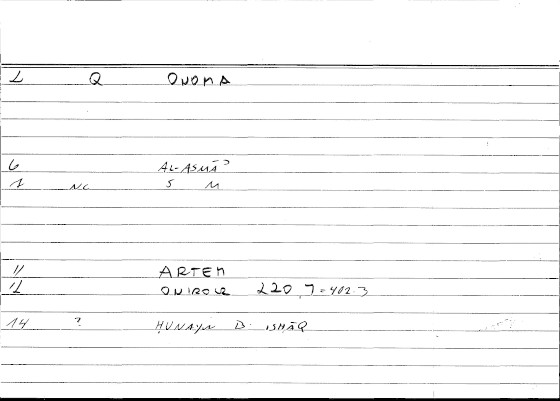 1 Q ONOMA
6 AL-ASMĀʾ
1 NC S M
11 ARTEM
12 ONIROCR 220,7 = 402.3
14 ? ḤUNAYN B. ISḤĀQ